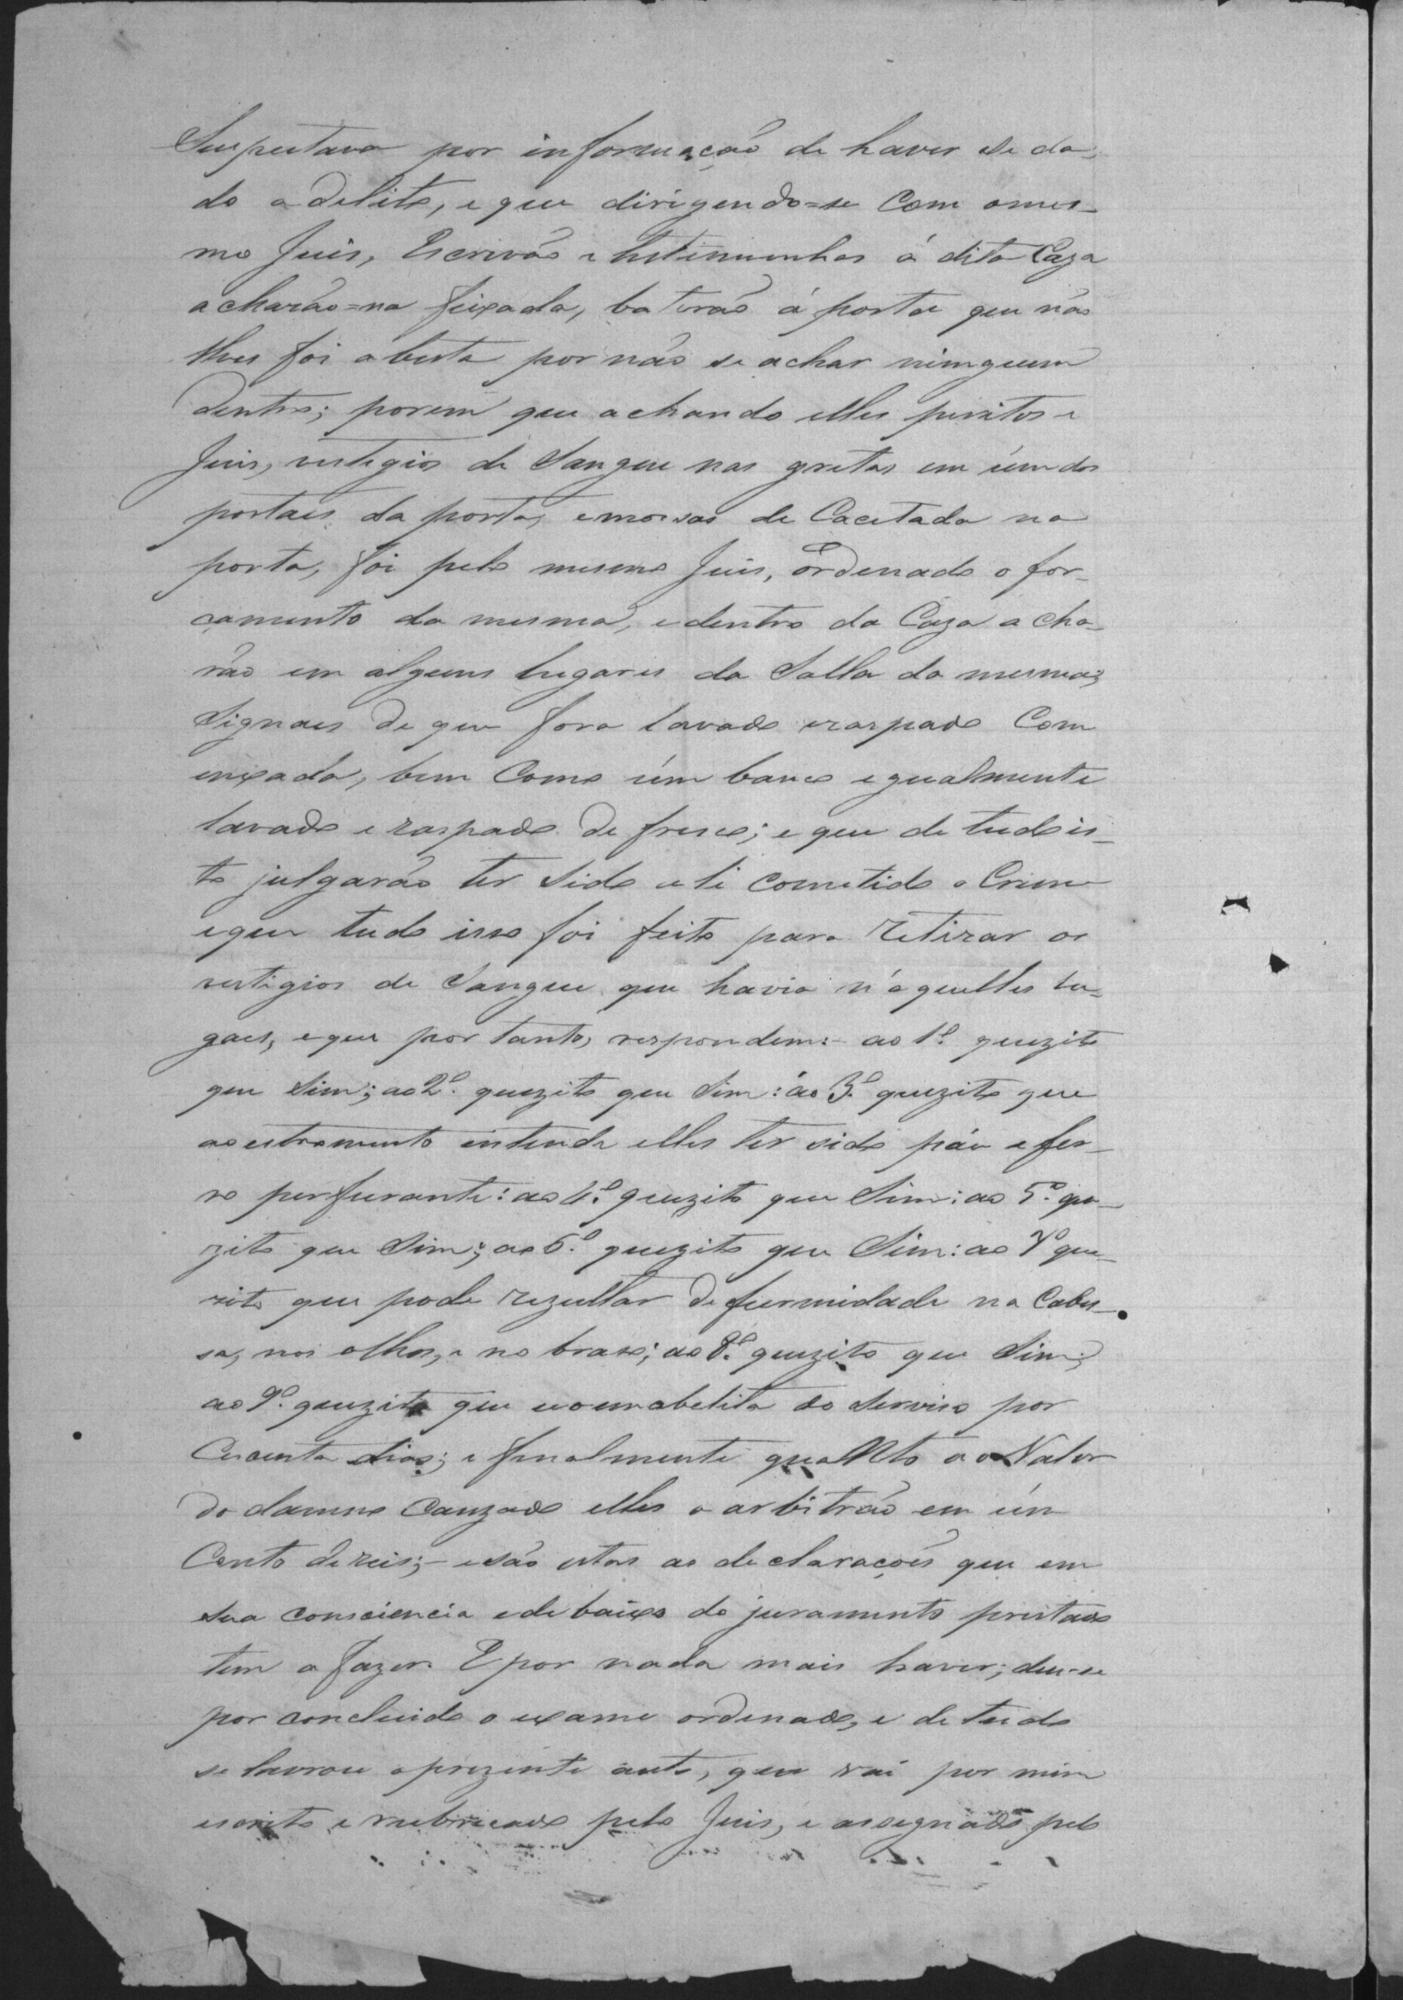 Suspeitava por informação de haver se da-
do o delito, e que dirigendo=se Com o mes-
mo Juis, Escrivão e testimunhas á dita Caza
acharão=na feixada, baterão á porta que não
lhes foi aberta por não se achar nimguem
dentro; porem que achando elles peritos e
Juis, vestigios de Sangue nas gretas em úm dos
portais da porta, e mossas de Cacetada na
porta, foi pelo mesmo Juis, ordenado o for-
çamento da mesma, e dentro da Caza acha-
rão em alguns lugares da Salla da mesma,
Signaes de que fora lavado e raspado Com
enxada, bem Como úm banco egualmente
lavado e raspado de fresco; e que de tudo is-
to julgarão ter sido ali cometido o Crime
e que tudo isso foi feito para retirar os
vestigios de Sangue que havia n'aquelles lu-
gaes, e que por tanto, respondem:- ao 1º. quezito
que Sim; ao 2º. quezito que Sim: ao 3º. quezito que
ao estromento entende elles ter sido páu e fer-
ro perfurante: ao 4º. quezito que Sim: ao 5º. que-
zito que Sim; ao 6º. quezito que Sim: ao 7º que-
zito que pode rezultar deformidade na Cabes-
sa, nos olhos, e no braso; ao 8º. quezito que Sim;
ao 9º. quezito que o do serviso por
dias; e finalmente quanto ao Valor
do damno Cauzado elles o arbitrão em úm
Conto de reis;- e são estas as declarações que em
sua consciencia e debaixo do juramento prestado
tem a fazer. E por nada mais haver; deu-se
por concluido o exame ordenado, e de tudo
se lavrou o prezente auto, que vai por mim
escrito e rubricado pelo Juis, e assegnado pelo